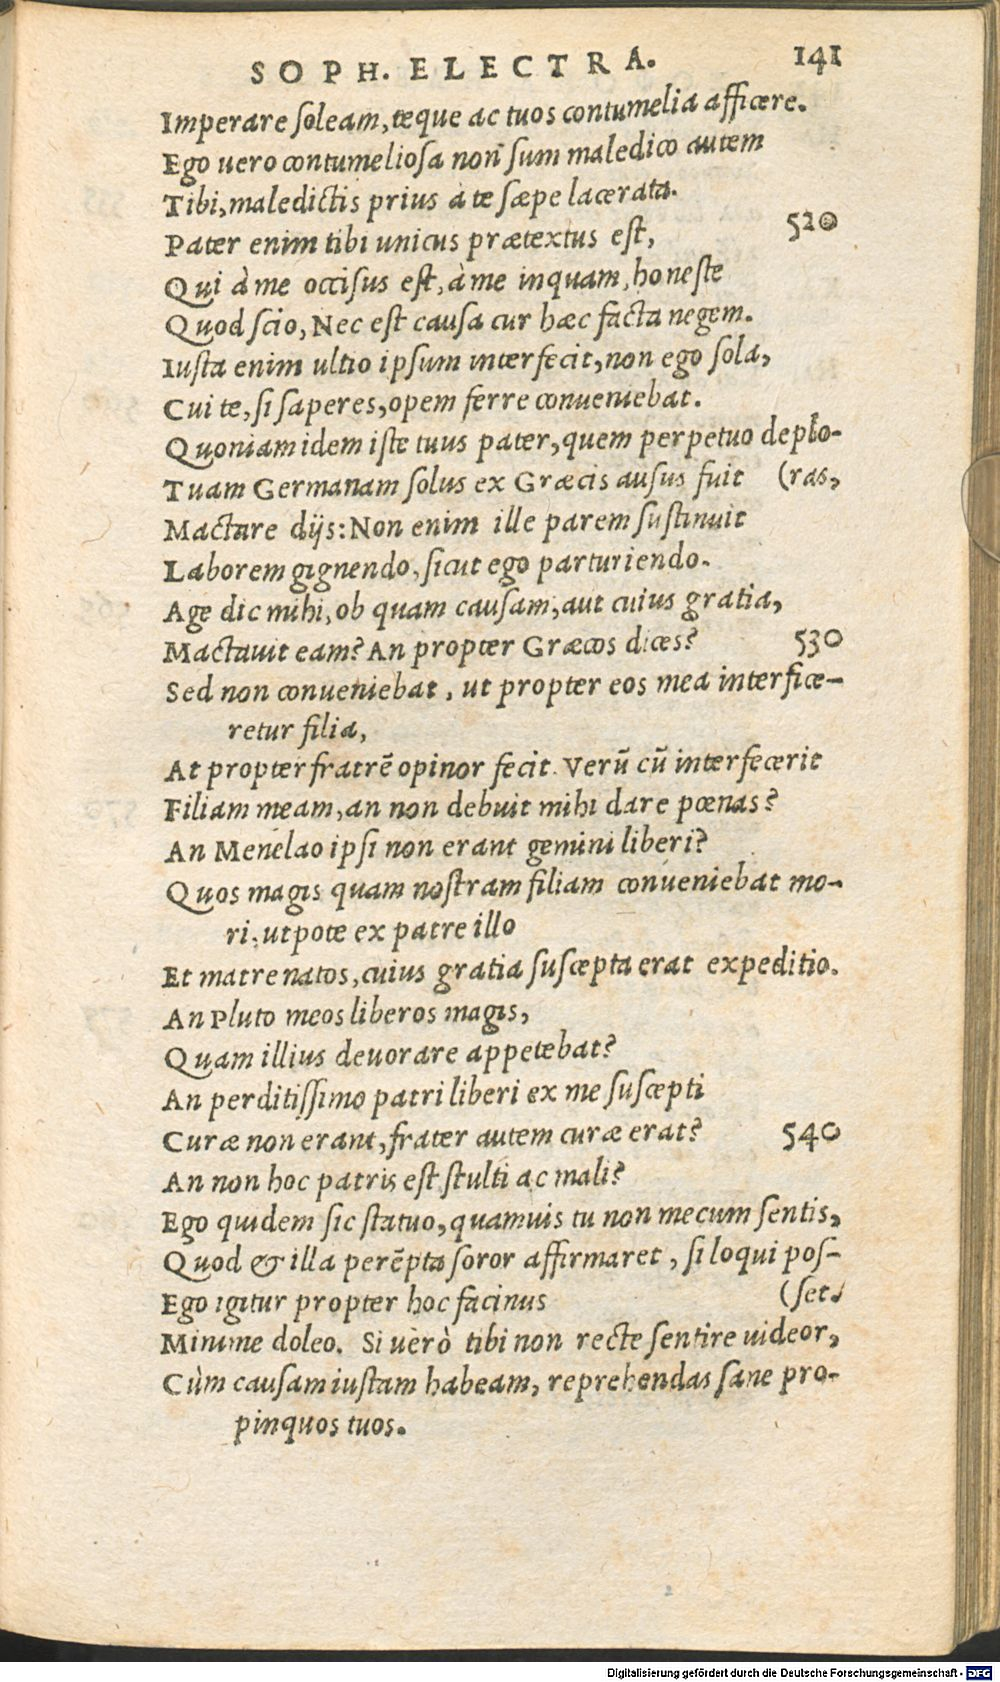 SOPH. ELECTRA. 141
Imperare soleam, teque ac tuos contumelia afficere.
Ego uero contumeliosa non sum maledico autem
Tibi, maledictis prius à te sæpe lacerata.
Pater enim tibi unicus prætextus est, 520
Qui à me occisus est, à me inquam, honeste
Quod scio, Nec est causa cur hæc facta negem.
Iusta enim ultio ipsum interfecit, non ego sola,
Cui te, si saperes, opem ferre conueniebat.
Quoniam idem iste tuus pater, quem perpetuo deplo-
Tuam Germanam solus ex Græcis ausus fuit (ras,
Mactare dijs: Non enim ille parem sustinuit
Laborem gignendo, sicut ego parturiendo.
Age dic mihi, ob quam causam, aut cuius gratia,
Mactauit eam? An propter Græcos dices? 530
Sed non conueniebat, ut propter eos mea interfice-
retur filia,
At propter fratrē opinor fecit. Verū cū interfecerit
Filiam meam, an non debuit mihi dare pœnas?
An Menelao ipsi non erant gemini liberi?
Quos magis quam nostram filiam conueniebat mo-
ri, utpote ex patre illo
Et matre natos, cuius gratia suscepta erat expeditio.
An Pluto meos liberos magis,
Quam illius deuorare appetebat?
An perditissimo patri liberi ex me suscepti
Curæ non erant, frater autem curæ erat? 540
An non hoc patris est stulti ac mali?
Ego quidem sic statuo, quamuis tu non mecum sentis,
Quod & illa perēpta soror affirmaret, si loqui pos-
Ego igitur propter hoc facinus (set.
Minime doleo. Si uerò tibi non recte sentire uideor,
Cùm causam iustam habeam, reprehendas sane pro-
pinquos tuos.
Digitalisierung gefördert durch die Deutsche Forschungsgemeinschaft - DFG